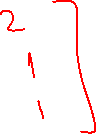 2 ]
1
1